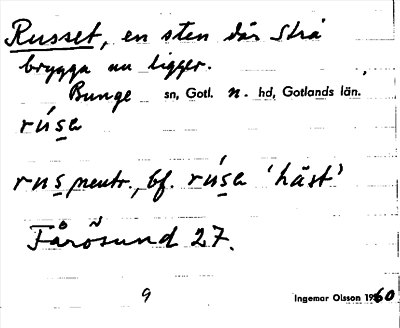 Russet, en sten där Strå
brygga nu ligger.
Bunge sn, Gotl. n. hd, Gotlands län.
rúsa
rus neutr., bf. rúsa 'häst'
Fårösund 27.
9
Ingemar Olsson 1960